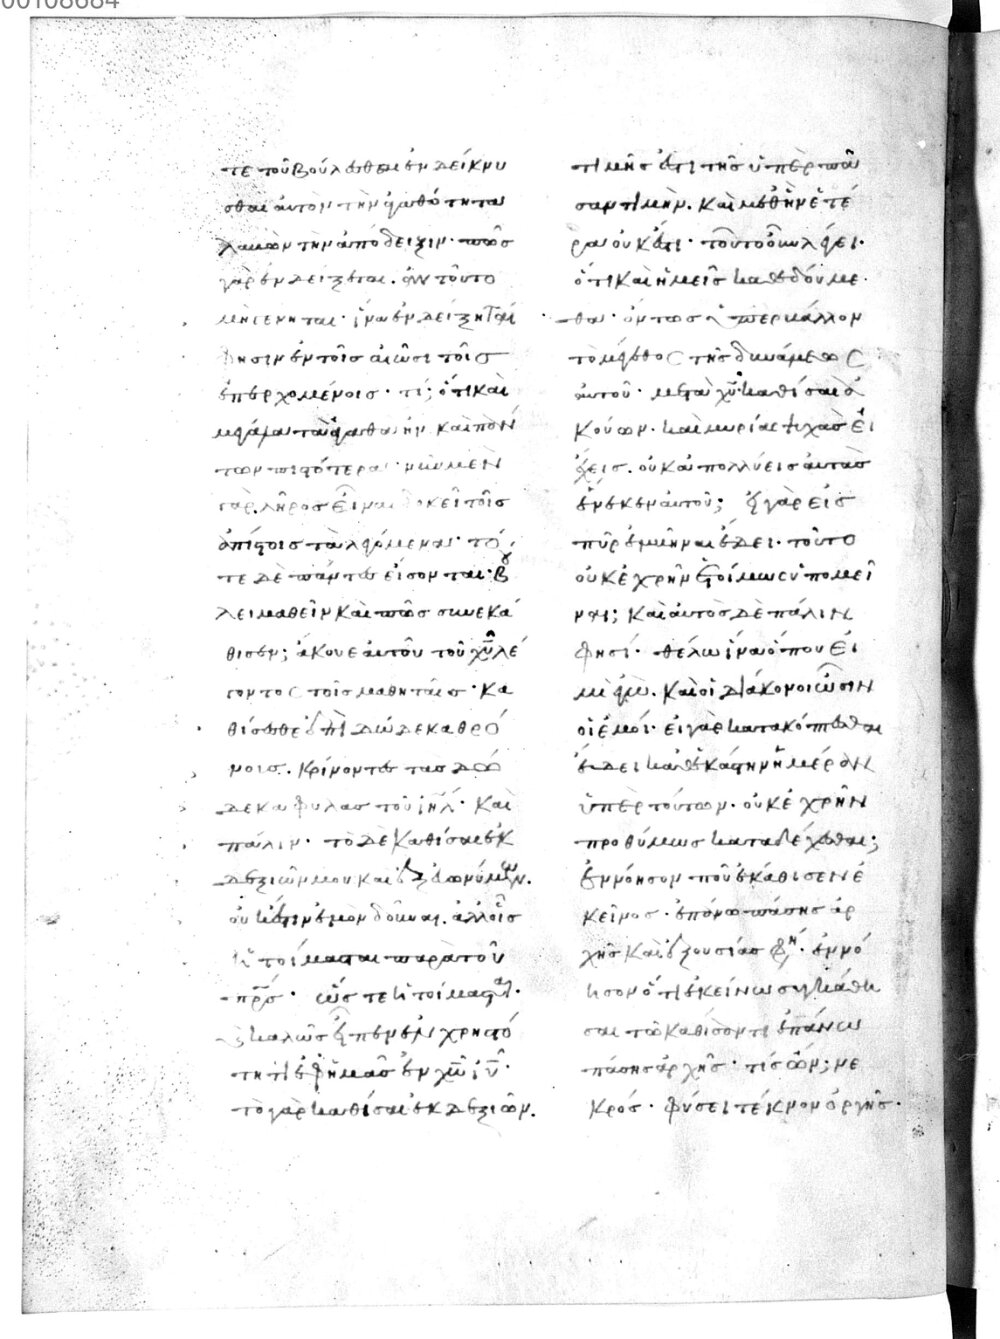 00108684
τε τοῦ βούλεσθαι ἐνδείκνυ
σθαι αὐτὸν τὴν ἀγαθότητα
λαβὼν τὴν ἀπόδειξιν· πῶς
γὰρ ἐνδείξεται. ἂν τοῦτο
μὴ γένηται· ἵνα ἐνδείξηται
φησὶν ἐν τοῖς αἰῶσι τοῖς
ἐπερχομένοις· τί; ὅτι καὶ
μεγάλα τὰ ἀγαθὰ ἦν καὶ πάν
των πιστότερα· νῦν μὲν
γὰρ λῆρος εἶναι δοκεῖ τοῖς
ἀπίστοις τὰ λεγόμενα· τό
τε δὲ πάντες εἴσονται· βού
λει μαθεῖν καὶ πῶς συνεκά
θισεν; ἄκουε αὐτοῦ τοῦ χυ λέ
γοντος τοῖς μαθηταῖς· κα
θίσεσθε ἐπὶ δώδεκα θρό
νοις. κρίνοντες τὰς δώ
δεκα φυλὰς τοῦ ιηλ· καὶ
πάλιν· τὸ δὲ καθίσαι ἐκ
δεξιῶν μου καὶ ἐξ εὐωνύμων.
οὐκ ἔστιν ἐμὸν δοῦναι. ἀλλ' οἷς
ἡτοίμασται παρὰ τοῦ
πρς· ὥστε ἡτοίμασται·
καλῶς εἶπεν ἐν χρηστό
τητι ἐφ' ἡμᾶς ἐν χω ιυ·
τὸ γὰρ καθίσαι ἐκ δεξιῶν.
τιμῆς ἐστι τῆς ὑπὲρ πᾶ
σαν τιμήν. καὶ μεθ' ἣν ἑτέ
ρα οὐκ ἔστι· τοῦτο οὖν λέγει·
ὅτι καὶ ἡμεῖς καθεδούμε
θα· ὄντως ὑπερβάλλον
τὸ μέγεθος τῆς δυνάμεως
αὐτοῦ· μετὰ χυ καθίσαι ἀ
κούων. κἂν μυρίας ψυχὰς εἶ
χες. οὐκ ἂν πολλύεις αὐτὰς
ἕνεκεν αὐτοῦ; εἰ γὰρ εἰς
πῦρ ἐμβῆναι ἔδει· τοῦτο
οὐκ ἐχρῆν ἑτοίμως ὑπομεῖ
ναι; καὶ αὐτὸς δὲ πάλιν
φησί· θέλω ἵνα ὅπου εἰ
μὶ ἐγώ. καὶ οἱ διάκονοι ὦσιν
οἱ ἐμοί· εἰ γὰρ κατακόπτεσθαι
ἔδει καθ' ἑκάστην ἡμέραν
ὑπὲρ τούτων· οὐκ ἐχρῆν
προθύμως καταδέχεσθαι;
ἐννόησον ποῦ ἐκάθισεν ἐ
κεῖνος· ἐπάνω πάσης ἀρ
χῆς καὶ ἐξουσίας φη· ἐννό
ησον ὅτι ἐκείνω συγκάθη
σαι τῶ καθίσοντι ἐπάνω
πάσης ἀρχῆς· τίς ὤν; νε
κρός· φύσει τέκνον ὀργῆς·